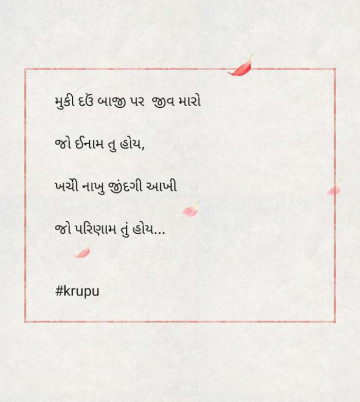 મુકી દઉં બાજી પર જીવ મારો
જો ઈનામ તુ હોય,
ખર્ચી નાખુ જીંદગી આખી
જો પરિણામ તું હોય...
#krupu